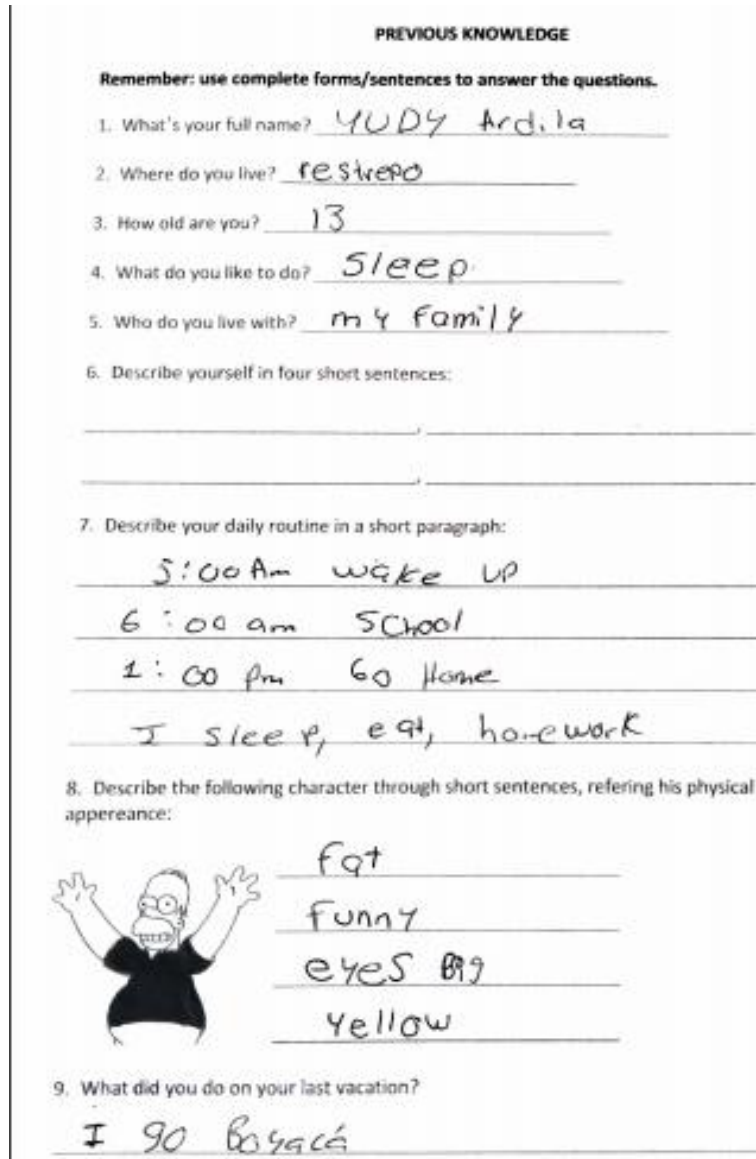 PREVIOUS KNOWLEDGE
Remember: use complete forms/sentences to answer the questions.
1. What's your full name? YUDY Ardila
2. Where do you live? restrepo
3. How old are you? 13
4. What do you like to do? Sleep
5. Who do you live with? my family
6. Describe yourself in four short sentences:
7. Describe your daily routine in a short paragraph:
5:00 Am wake up
6:00 am School
1:00 pm Go Home
I sleep, eat, homework
8. Describe the following character through short sentences, refering his physical
appereance:
fat
funny
eyes Big
Yellow
9. What did you do on your last vacation?
I go Boyacá